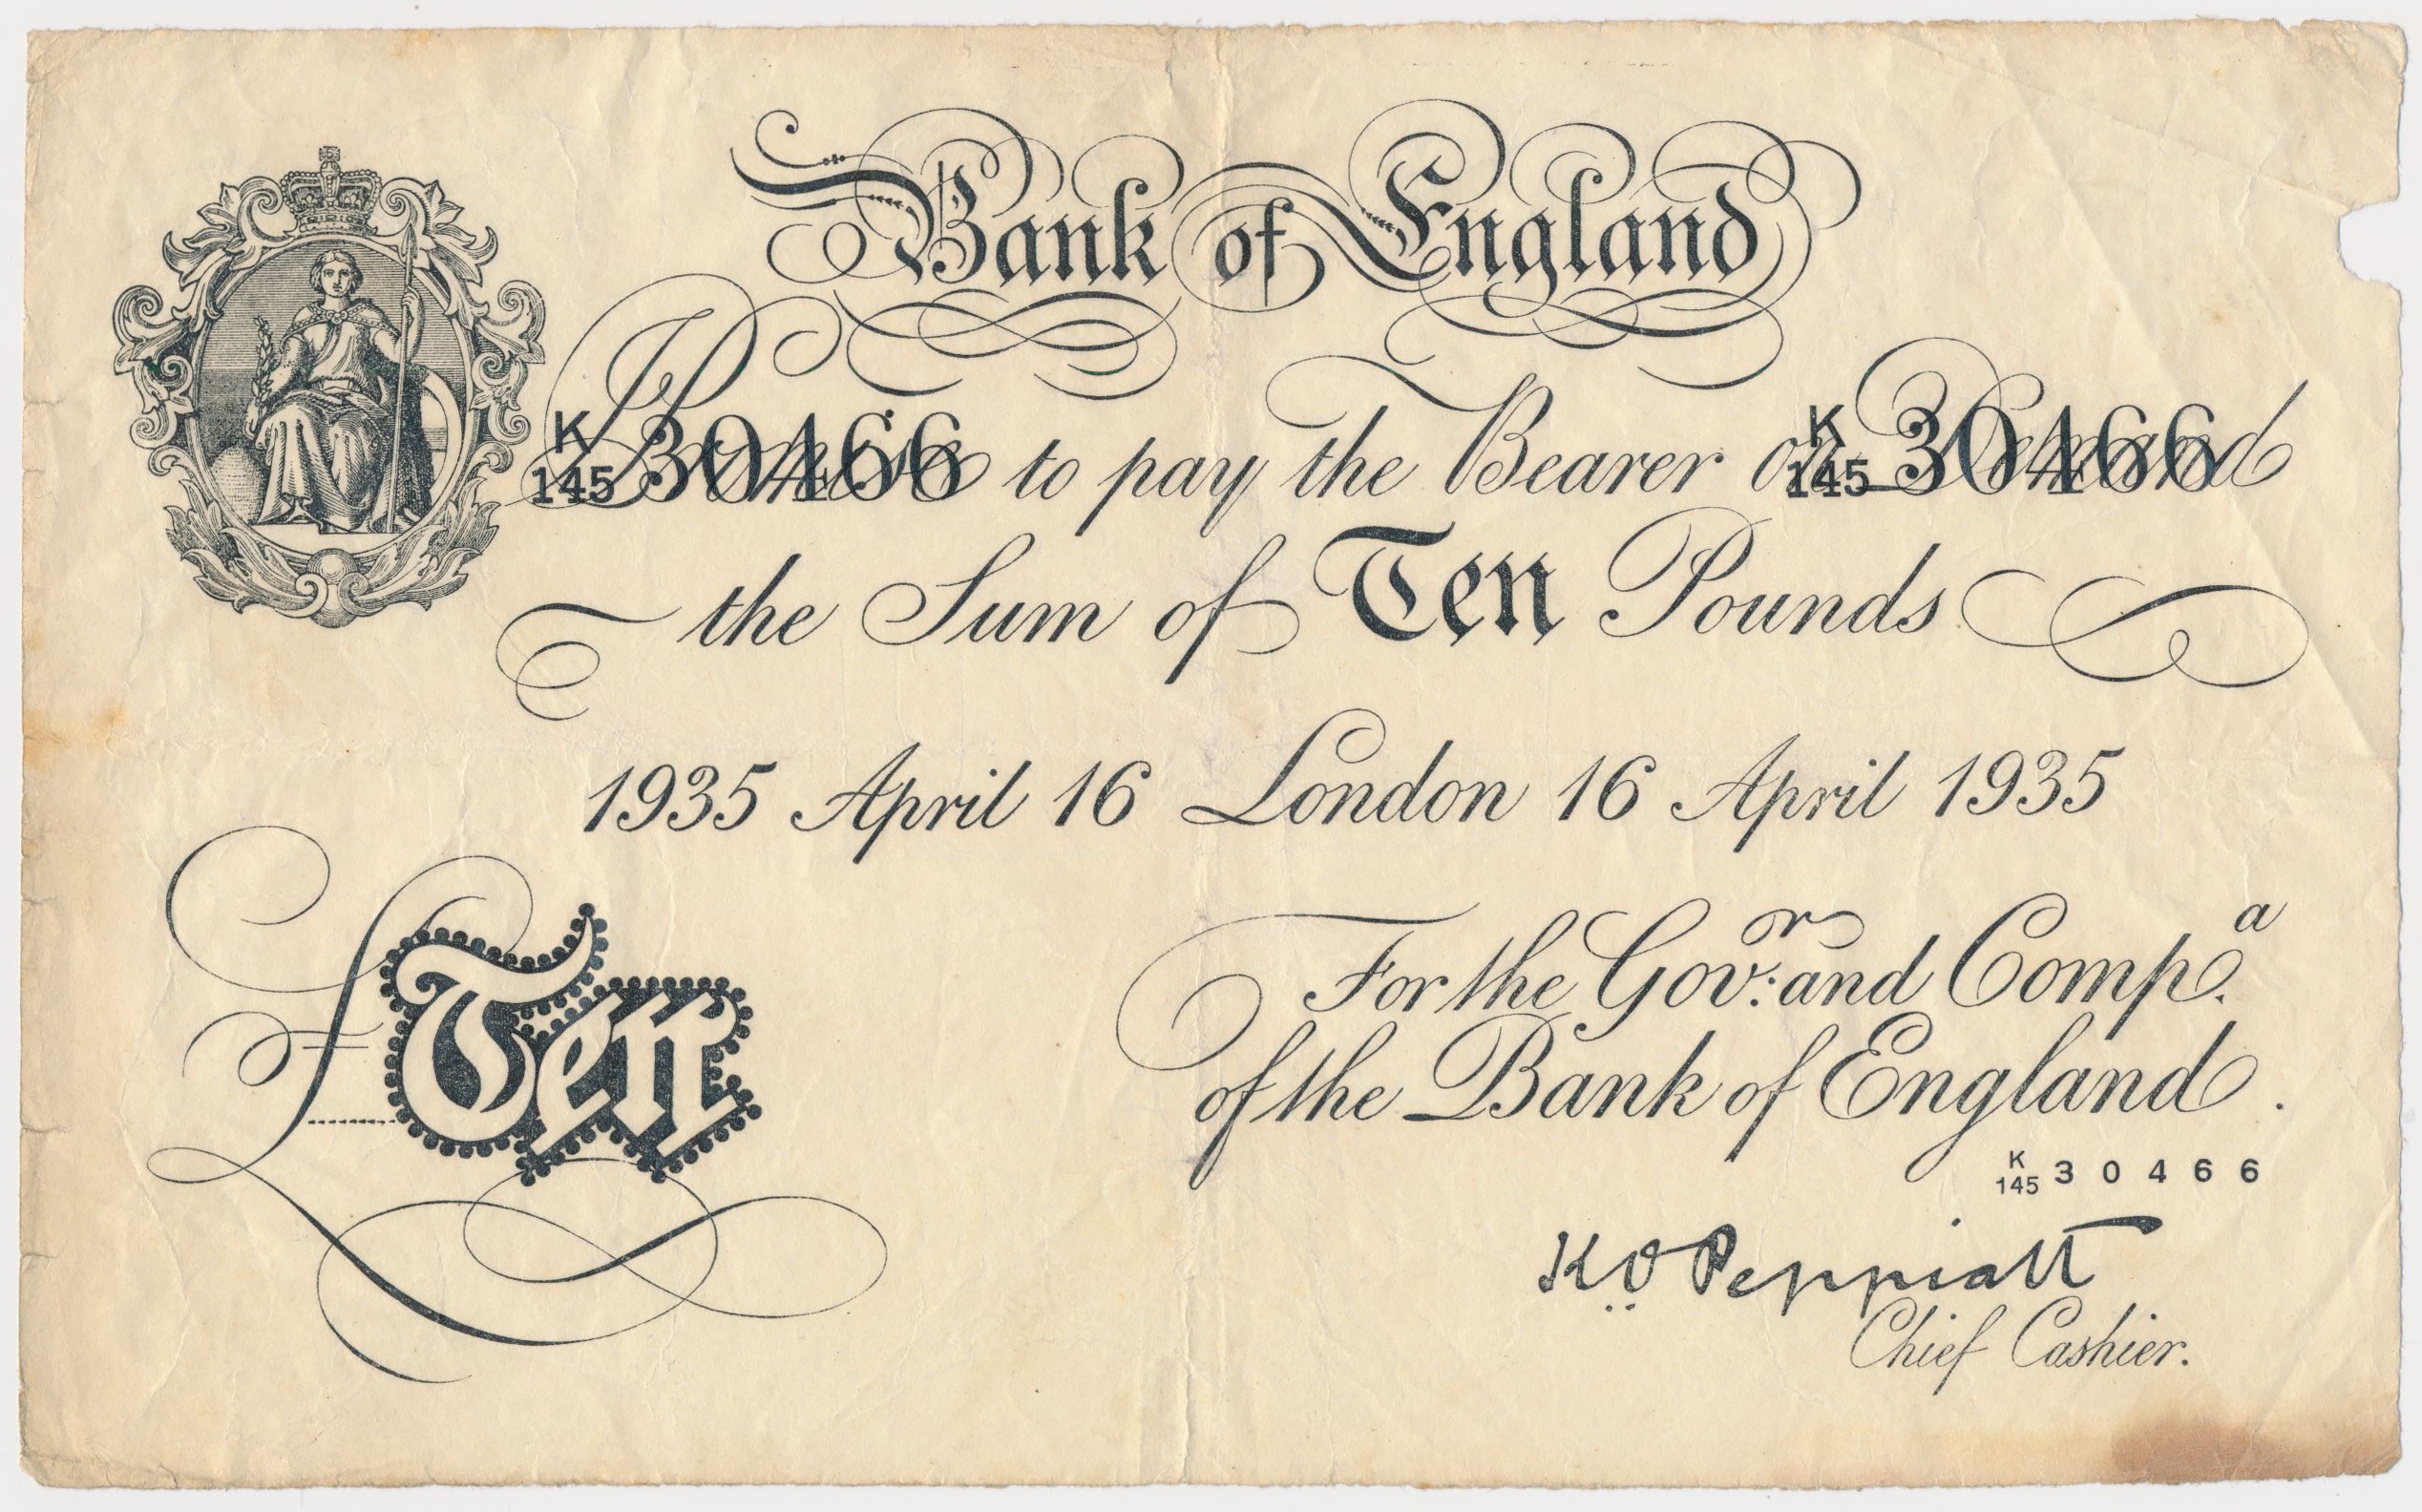 Bank of England
K
145 30466
K
145 30466
I Promise to pay the Bearer on Demand
the Sum of Ten Pounds
1935 April 16 London 16 April 1935
£Ten
For the Gov:or and Comp.a
of the Bank of England.
K
145 30466
K O Peppiatt
Chief Cashier.